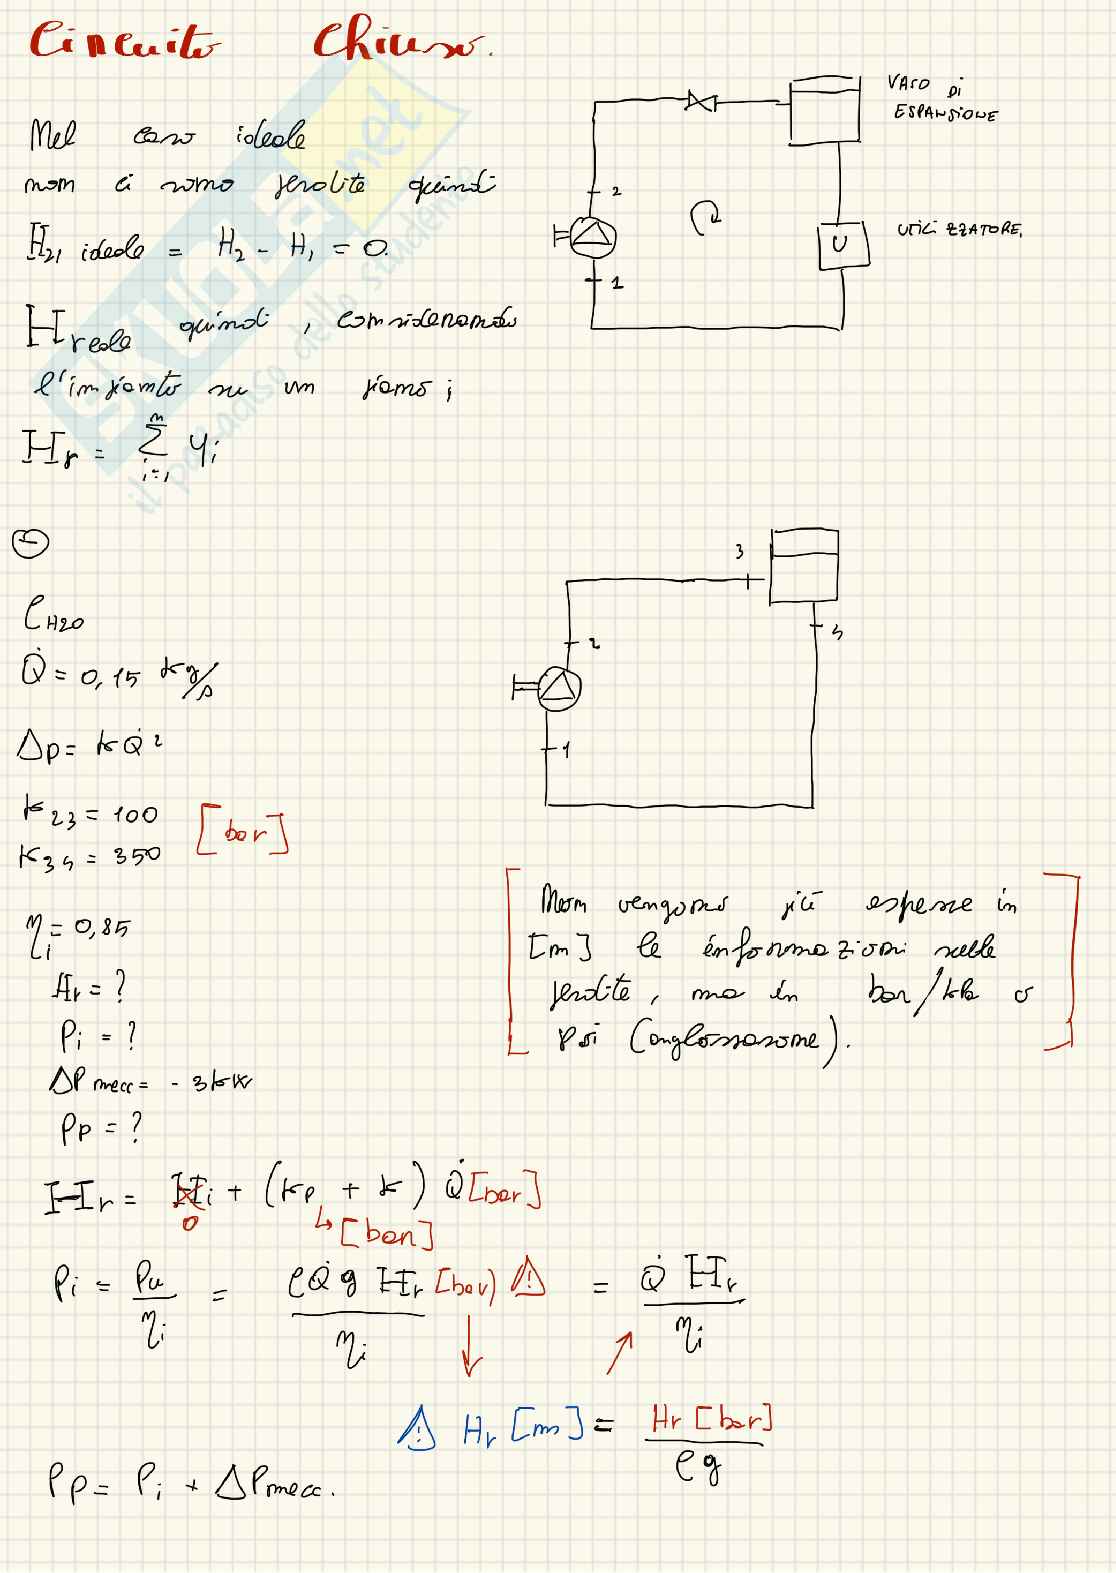 Circuito Chiuso.
Nel caso ideale
non ci sono perdite quindi
H21 ideale = H2 - H1 = 0.
Hreale quindi, considerando
l'impianto su un piano;
Hr = Σ Yi
n
i=1
VASO DI
ESPANSIONE
2
1
U
UTILIZZATORE.
SKUOLA.net
il paradiso dello studente
ρH2O
Q̇ = 0,15 kg/s
Δp = kQ̇²
k23 = 100
k34 = 350
[bar]
ηi = 0,85
Hr = ?
Pi = ?
ΔPmecc = - 3kW
Pp = ?
3
2
4
1
[Non vengono più espresse in
[m] le informazioni sulle
perdite, ma in bar/kPa o
psi (anglossassone).]
Hr = Hi + (kp + k) Q̇ [bar]
0 ↳ [bar]
Pi = Pu/ηi = ρQ̇g Hr [bar] ⚠/ηi = Q̇ Hr/ηi
⚠ Hr [m] = Hr [bar]/ρg
Pp = Pi + ΔPmecc.